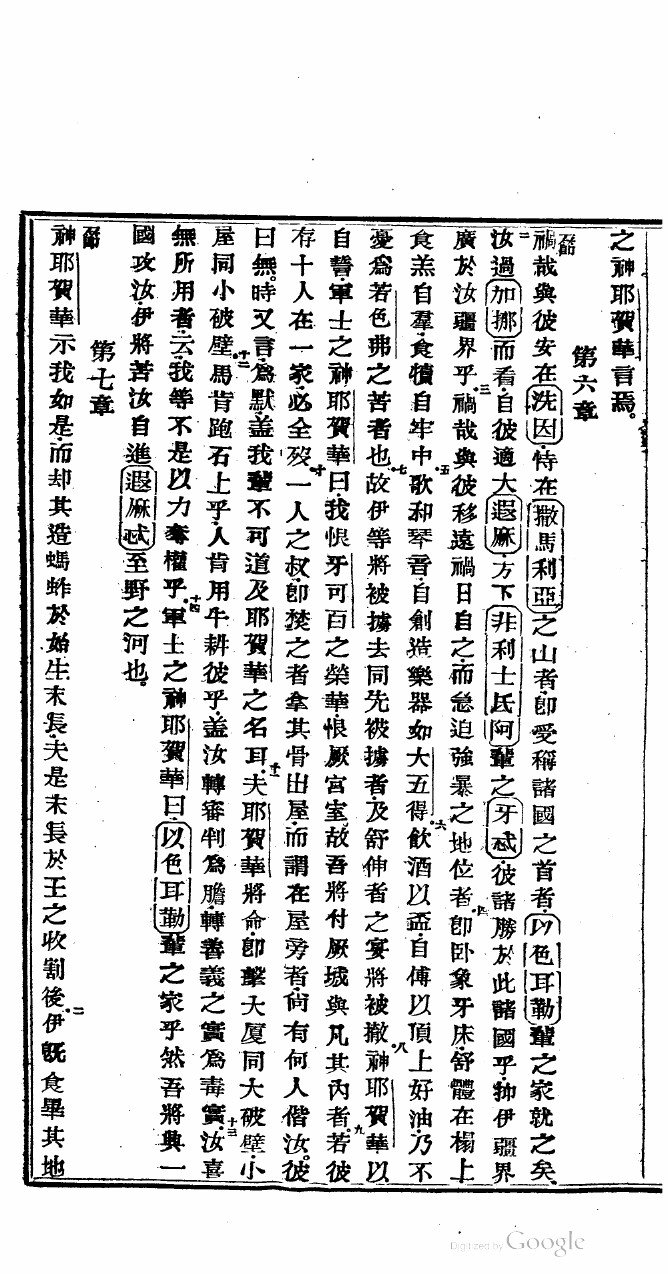 之神耶賀華言焉。
第六章
一節 禍哉與彼安在洗因、恃在撒馬利亞之山者、卽受稱諸國之首者、以色耳勒輩之家就之矣、
二 汝過加挪而看、自彼適大遐麻、方下非利士氏阿輩之牙忒、彼諸勝於此諸國乎、抑伊疆界
廣於汝疆界乎、三 禍哉與彼移遠禍日自之、而急迫強暴之地位者、四 卽臥象牙床、舒體在榻上、
食羔自羣、食犢自牢中、五 歌和琴音、自創造樂器如大五得、六 飲酒以盃、自傅以頂上好油、乃不
憂為若色弗之苦者也、七 故伊等將被擄去同先被擄者、及舒伸者之宴將被撤、八 神耶賀華以
自誓、軍士之神耶賀華曰、我恨牙可百之榮華、恨厥宮室、故吾將付厥城與凡其內者、九 若彼
存十人在一家、必全歿、十 一人之叔、卽焚之者、拿其骨出屋、而謂在屋旁者、尙有何人偕汝。彼
曰無。時又言、為默、蓋我輩不可道及耶賀華之名耳、十一 夫耶賀華將命、卽擊大厦同大破壁、小
屋同小破壁、十二 馬肯跑石上乎、人肯用牛耕彼乎、蓋汝轉審判為膽、轉善義之實為毒實、十三 汝喜
無所用者、云、我等不是以力奪權乎、十四 軍士之神耶賀華曰、以色耳勒輩之家乎、然吾將興一
國攻汝、伊將苦汝自進遐麻忒至野之河也、
第七章
一節 神耶賀華示我如是、而却其造螞蚱於始生末長、夫是末長於王之收割後、二 伊旣食畢其地
Digitized by Google